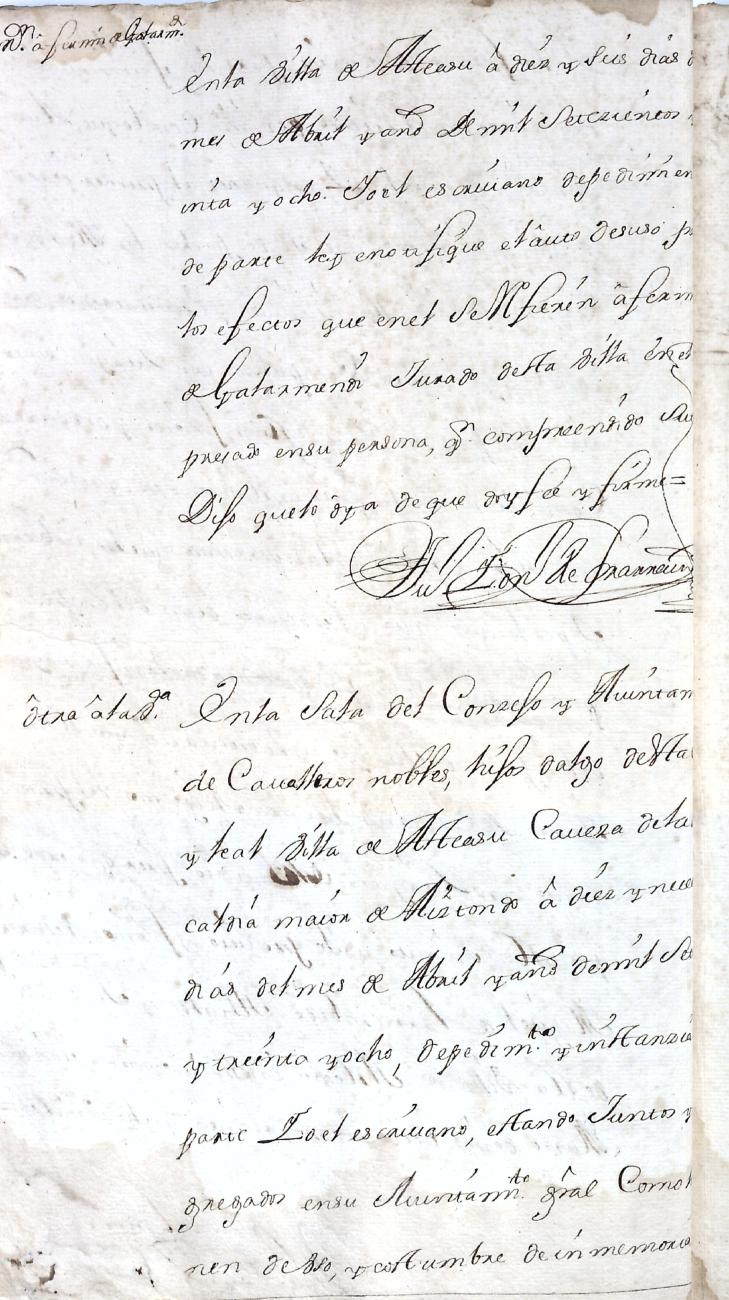 Non. â fermin de Gatarmdi.
Enla Villa de Atteasu â diéz y seis dias d
mes de Abril y año de mil Setezientos
inta y ocho. Yo el escrivano de pedimien
de parte ley enotifique el âuto desuso p
los efectos que enel se Refieren â ferm
de Gatarmendi Jurado desta Villa en el
presado ensu persona, qn. comprendido su
Dijo que lo oya de que doy feé y firme=
de Larrain
ôtra â la Va.
Enla Sala del Conzejo y Aiuntam
de Cavalleros nobles, hijos dalgo desta
y leal Villa de Atteasu Caveza dela
caldia maior de Aiztondo â diéz y nue
dias del mes de Abril y año de mil Set
y treinta y ocho, de pedimto. y instanzia
parte Yo el escrivano, estando Juntos y
gregados ensu Aiuntamto. gral Como
nen de Vso, y costumbre de inmemoria